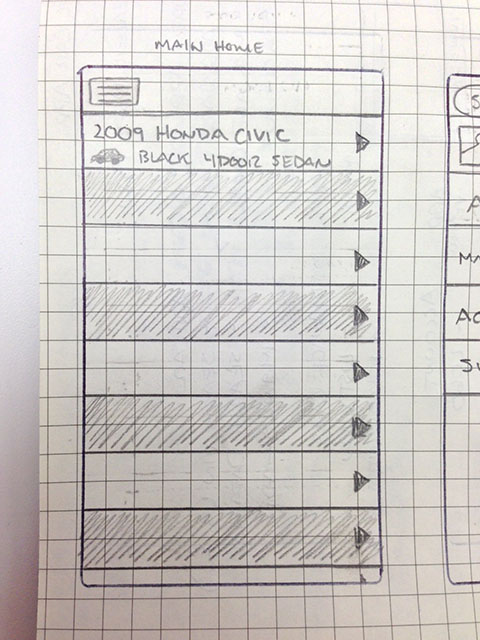 MAIN HOME
2009 HONDA CIVIC
BLACK 4DOOR SEDAN
S
A
MA
AC